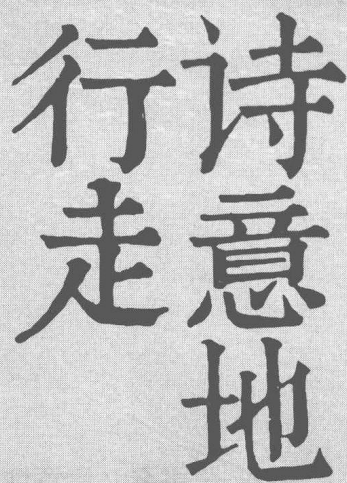 诗意地
行走